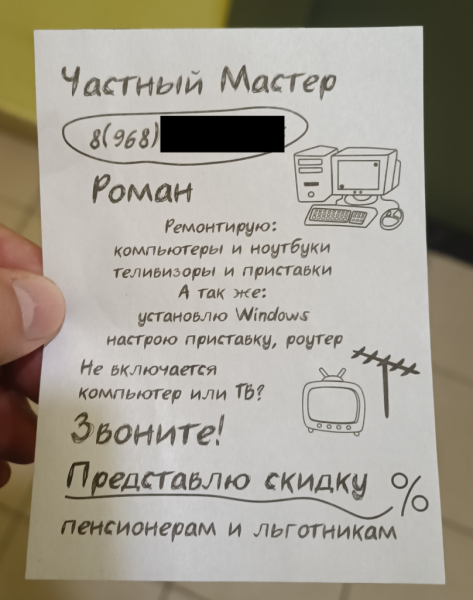 Частный Мастер
8(968)
Роман
Ремонтирую:
компьютеры и ноутбуки
теливизоры и приставки
А так же:
установлю Windows
настрою приставку, роутер
Не включается
компьютер или ТВ?
Звоните!
Представлю скидку %
пенсионерам и льготникам